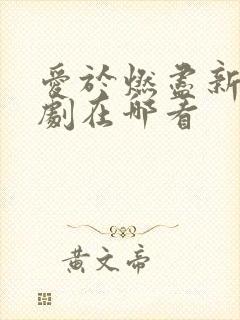 愛於燃盡新
劇在哪看
黃文帝